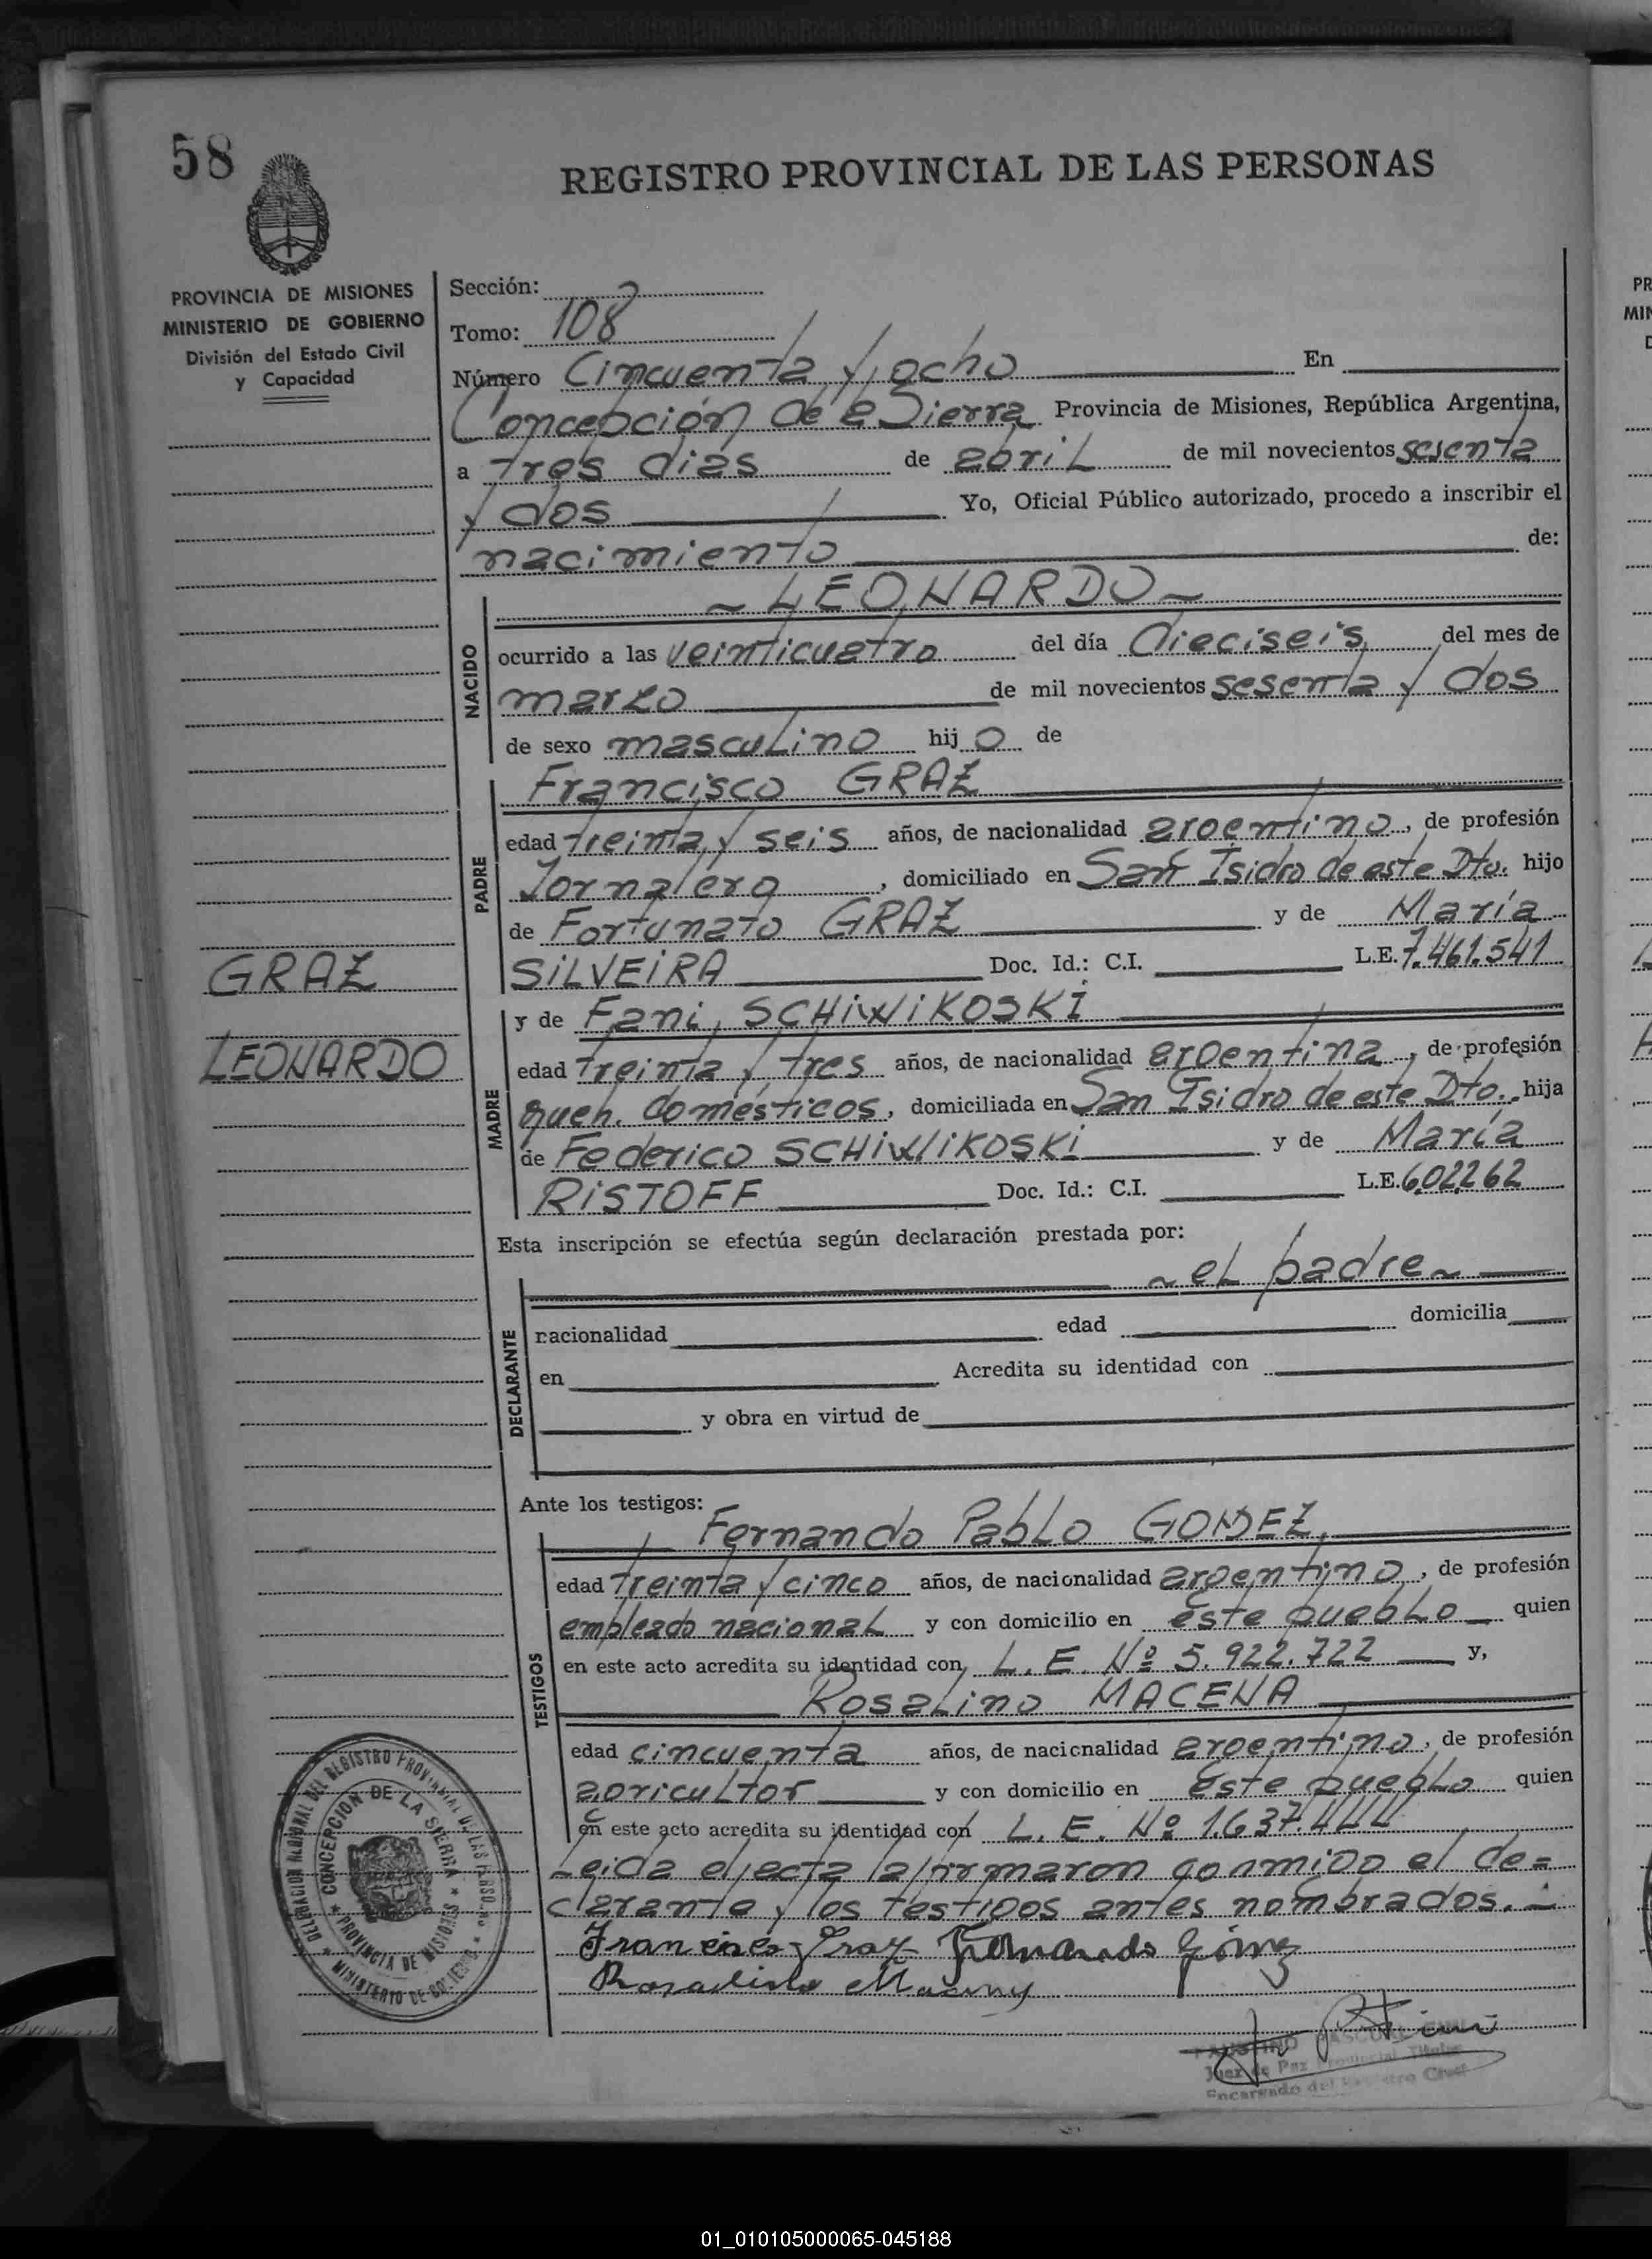 58
REGISTRO PROVINCIAL DE LAS PERSONAS
PROVINCIA DE MISIONES
MINISTERIO DE GOBIERNO
División del Estado Civil
y Capacidad
Sección:
Tomo: 108
Número Cincuenta y ocho En
Concepción de la Sierra Provincia de Misiones, República Argentina,
a tres dias de abril de mil novecientos sesenta
y dos Yo, Oficial Público autorizado, procedo a inscribir el
nacimiento de:
~ LEONARDO ~
NACIDO
ocurrido a las veinticuatro del día dieciseis del mes de
marzo de mil novecientos sesenta y dos
de sexo masculino hijo de
Francisco GRAZ
PADRE
edad treinta y seis años, de nacionalidad argentino, de profesión
Jornalero, domiciliado en San Isidro de este Dto. hijo
de Fortunato GRAZ y de María
SILVEIRA Doc. Id.: C.I. L.E. 7.461.541
GRAZ
LEONARDO
y de Fani SCHIWIKOSKI
MADRE
edad treinta y tres años, de nacionalidad argentina, de profesión
queh. domésticos, domiciliada en San Isidro de este Dto. hija
de Federico SCHIWIKOSKI y de María
RISTOFF Doc. Id.: C.I. L.E. 6.02262
Esta inscripción se efectúa según declaración prestada por:
~ el padre ~
DECLARANTE
nacionalidad edad domicilia
en Acredita su identidad con
y obra en virtud de
Ante los testigos:
Fernando Pablo GOMEZ,
TESTIGOS
edad treinta y cinco años, de nacionalidad argentino, de profesión
empleado nacional y con domicilio en este pueblo quien
en este acto acredita su identidad con L. E. Nº 5.922.722 y,
Rosalino MACENA
edad cincuenta años, de nacionalidad argentino, de profesión
agricultor y con domicilio en este pueblo quien
en este acto acredita su identidad con L. E. Nº 1.637.444
Leida el acta la firmaron conmigo el de=
clarante y los testigos antes nombrados. =
Francisco Graz Fernando Gómez
Rosalino
DELEGACION REGIONAL DEL REGISTRO PROVINCIAL DE LAS PERSONAS
CONCEPCION DE LA SIERRA
PROVINCIA DE MISIONES
MINISTERIO DE GOBIERNO
Juez de Paz Provincial Titular
Encargado del Registro Civil
01_010105000065-045188